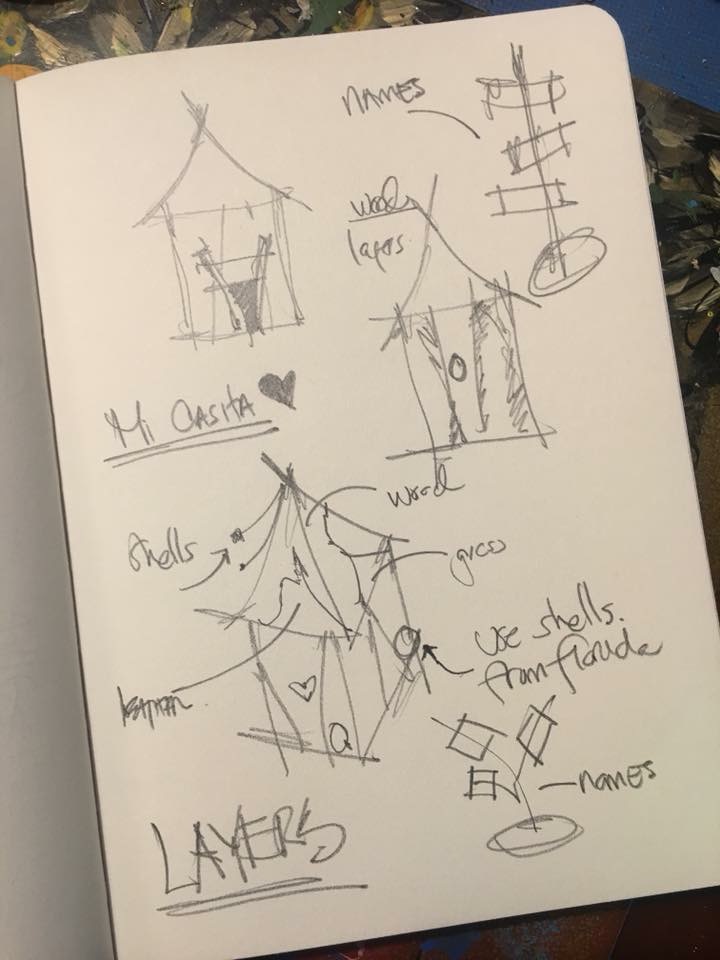 NAMES
wood
layers.
Mi CASITA
wood
shells
grass
use shells.
from florida
names
LAYERS